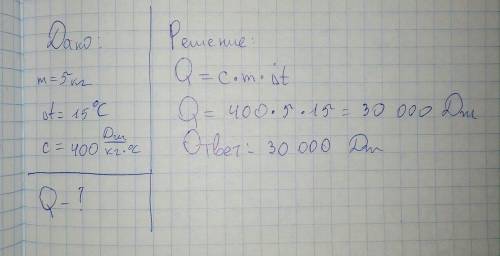 Дано:
m = 5 кг
Δt = 15 °C
c = 400 Дж/кг·°C
Q - ?
Решение:
Q = c · m · Δt
Q = 400 · 5 · 15 = 30 000 Дж
Ответ: 30 000 Дж